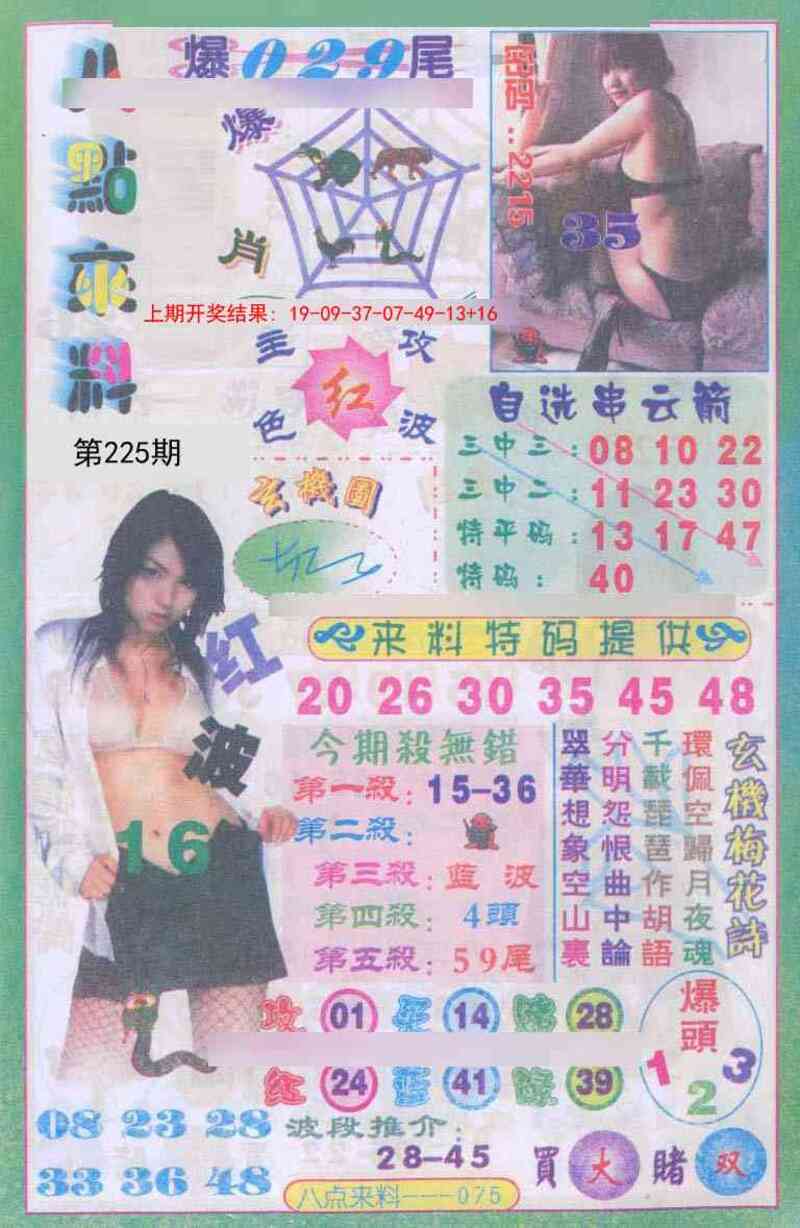 八點來料
爆029尾
爆肖
密碼：2215
35
上期开奖结果：19-09-37-07-49-13+16
主攻
红
色波
第225期
玄機圖
自选串云箭
三中三：08 10 22
三中二：11 23 30
特平码：13 17 47
特码：40
来料特码提供
20 26 30 35 45 48
红波
16
今期殺無錯
第一殺：15-36
第二殺：
第三殺：蓝波
第四殺：4頭
第五殺：59尾
玄機梅花詩
環佩空歸月夜魂
千載琵琶作胡語
分明怨恨曲中論
翠華想象空山裏
01 14 28
红 24 蓝 41 綠 39
爆頭
1 2 3
08 23 28
33 36 48
波段推介：
28-45
買大賭双
八点来料---075